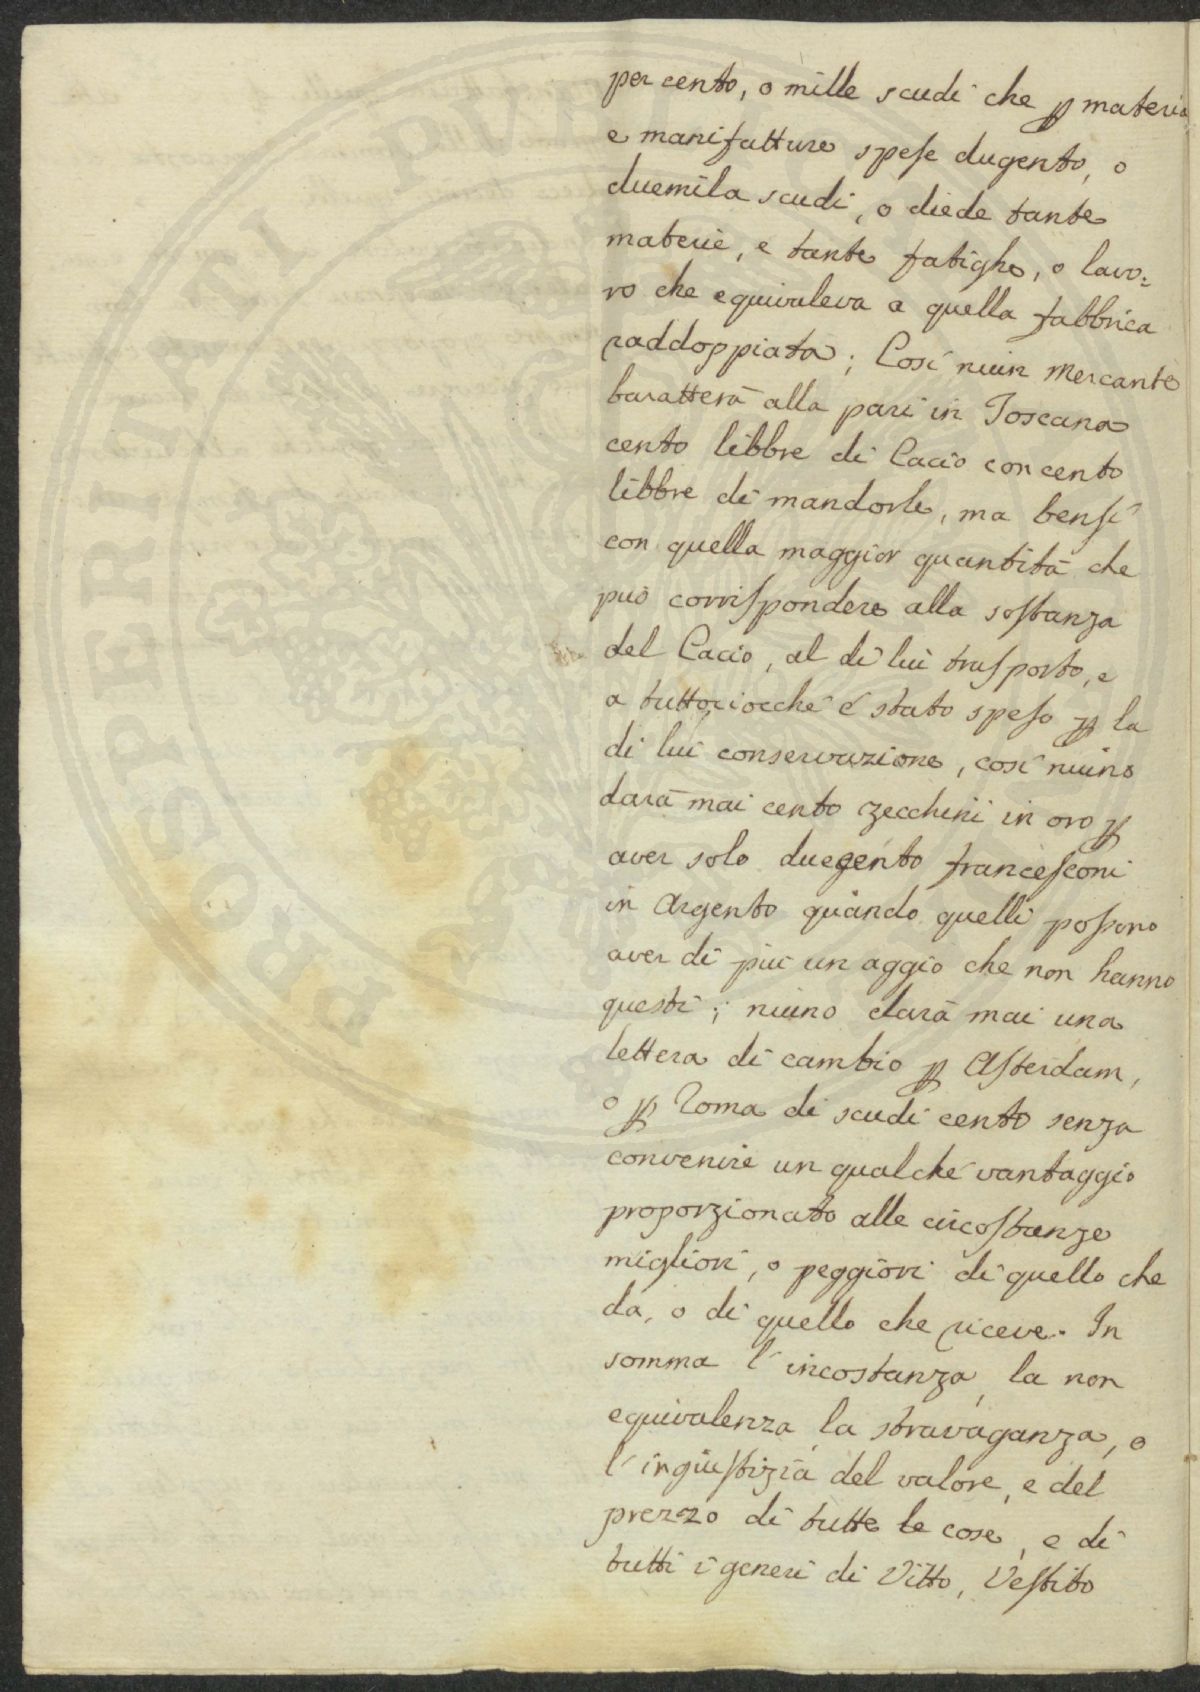 per cento, o mille scudi che p materia
e manifatture spese dugento, o
duemila scudi, o diede tante
materie, e tante fatighe, o lavo=
ro che equivaleva a quella fabbrica
raddoppiata; Così niun Mercante
baratterà alla pari in Toscana
cento libbre di Cacio con cento
libbre di mandorle, ma bensì
con quella maggior quantità che
può corrispondere alla sostanza
del Cacio, al di lui trasporto, e
a tuttociocché è stato speso p la
di lui conservazione, così niuno
darà mai cento zecchini in oro p
aver solo duegento francesconi
in Argento quando quelli possono
aver di più un aggio che non hanno
questi; niuno darà mai una
lettera di cambio p Asterdam,
o p Roma di scudi cento senza
convenire un qualche vantaggio
proporzionato alle circostanze
migliori, o peggiori di quello che
da, o di quello che riceve. In
somma l'incostanza, la non
equivalenza, la stravaganza, o
l'ingiustizia del valore, e del
prezzo di tutte le cose, e di
tutti i generi di Vitto, Vestito
PROPRIETÀ